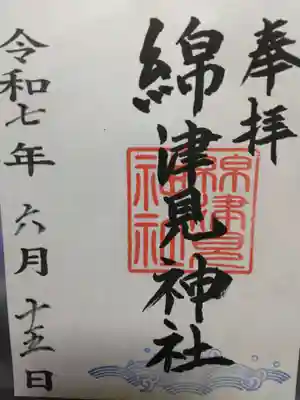 奉拝
綿津見神社
綿津見
神社
令和七年 六月 十五日